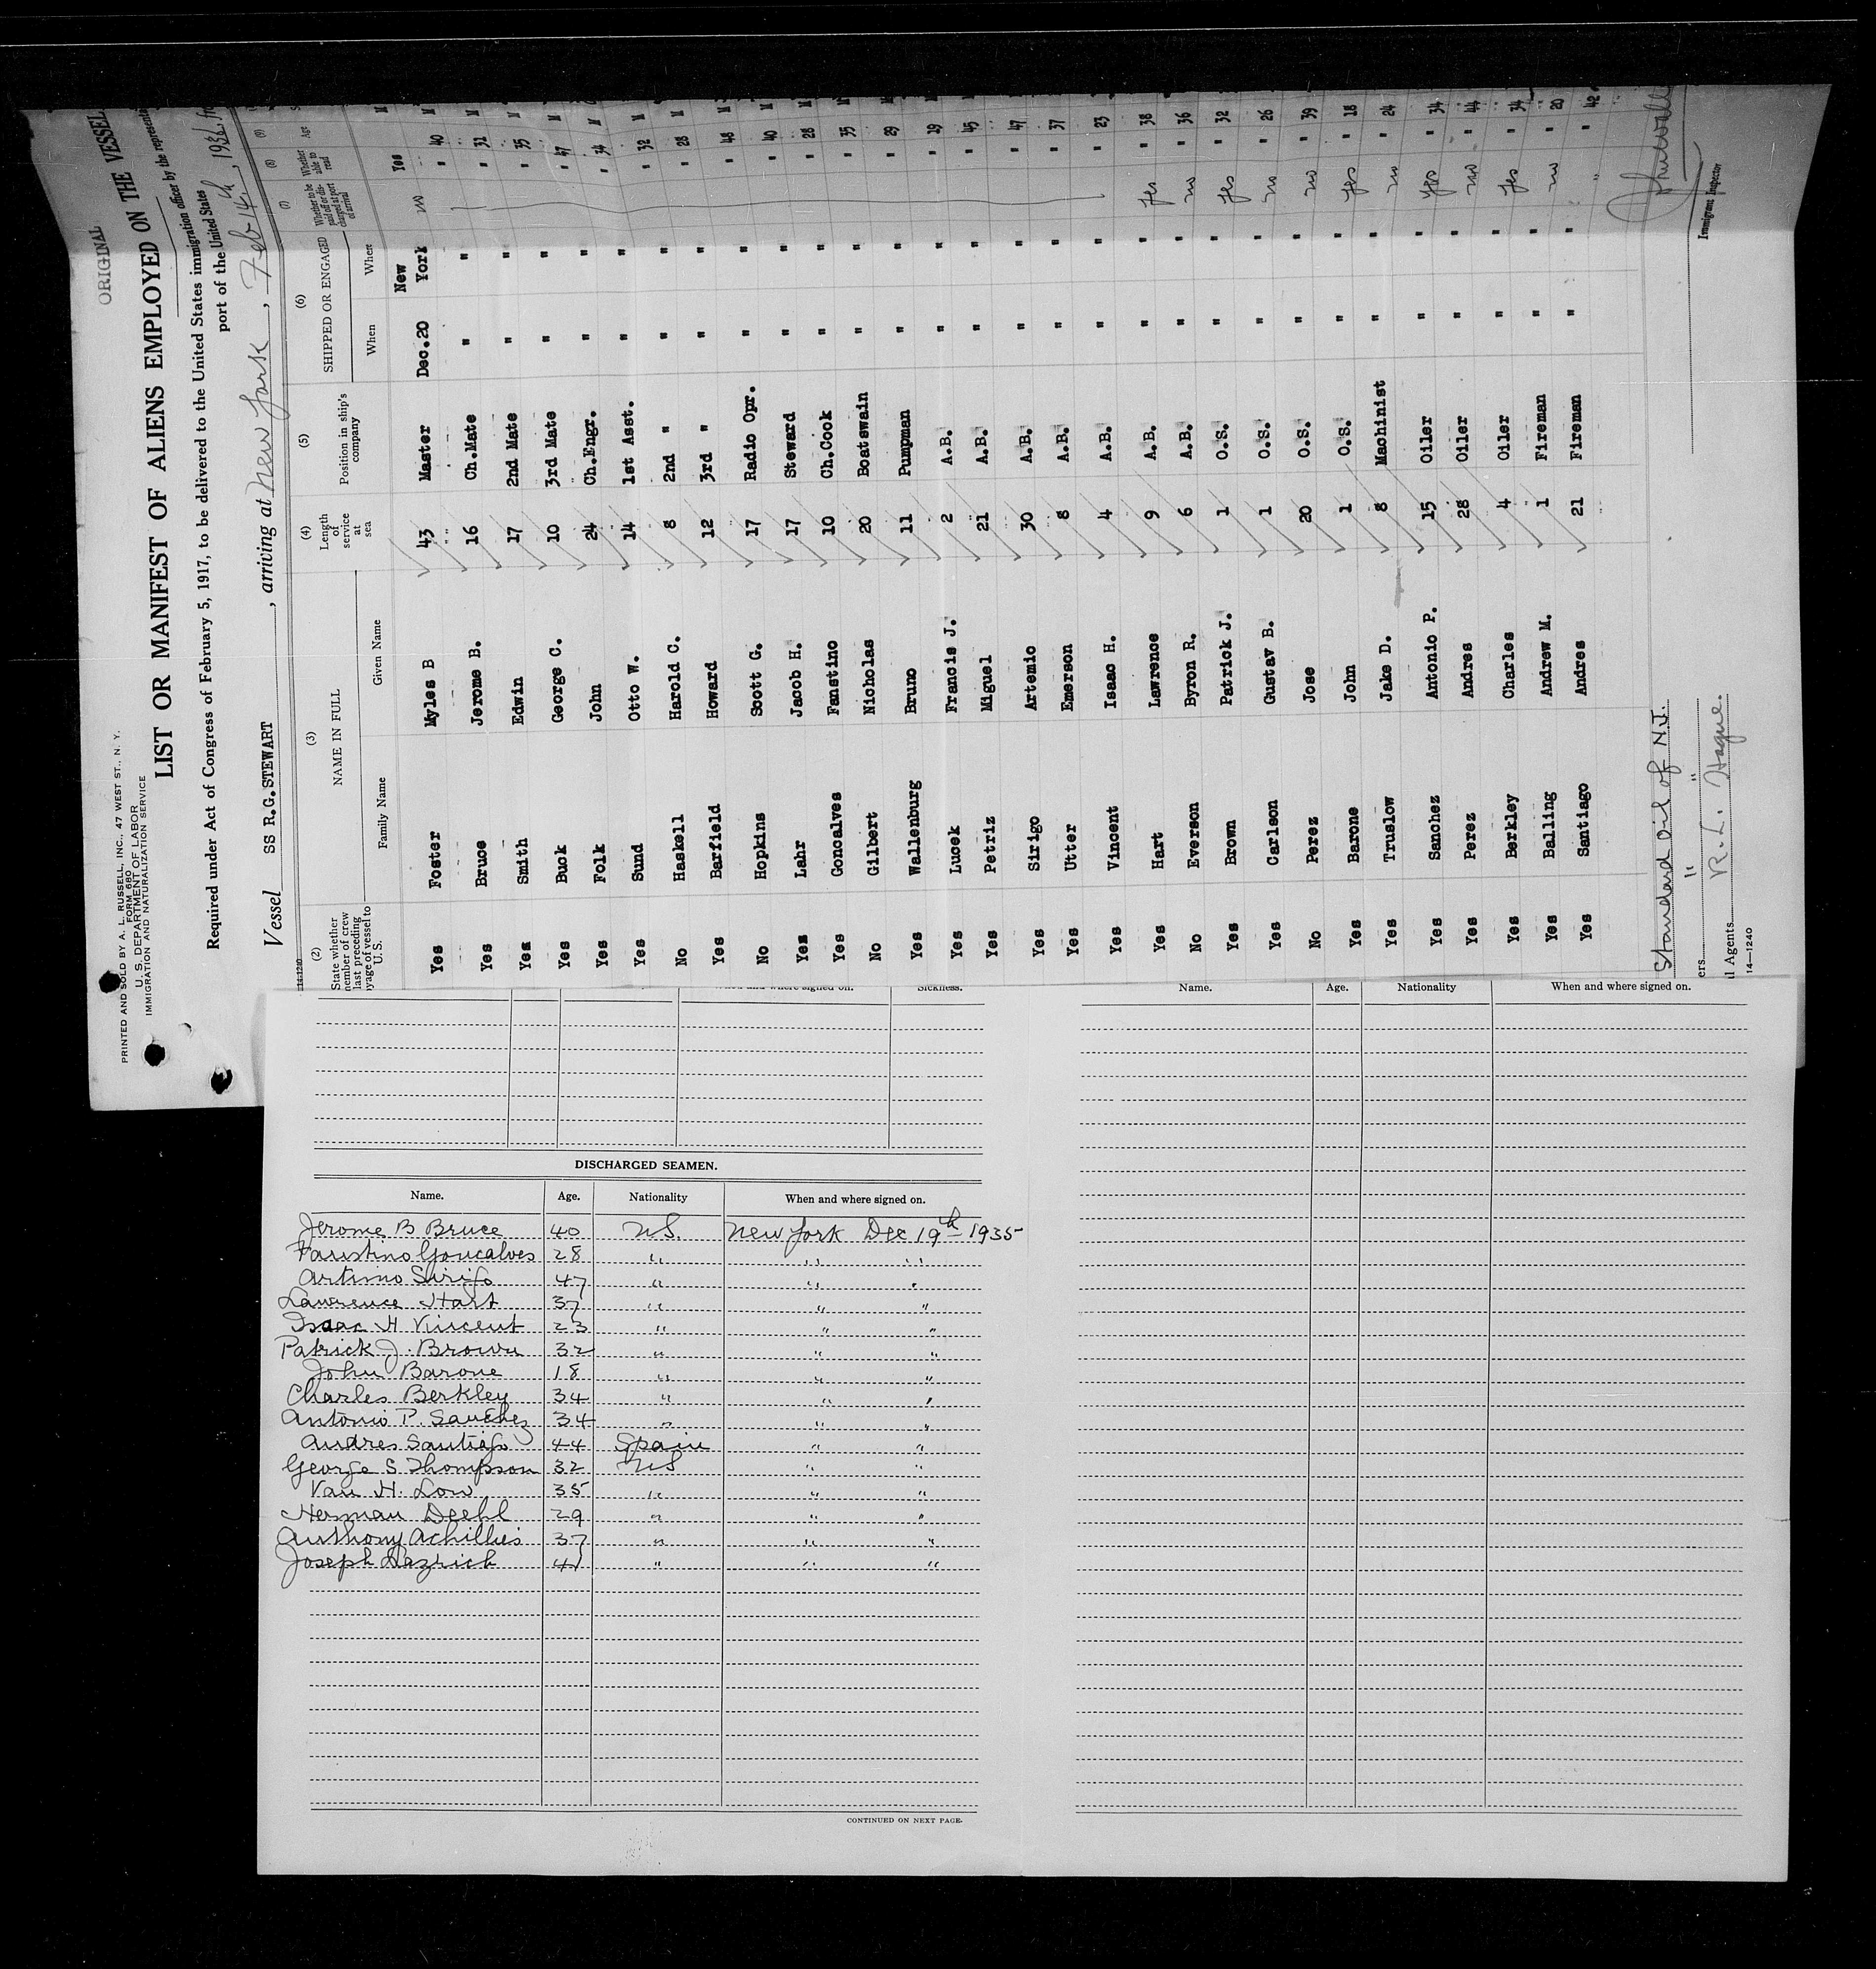 ORIGINAL
PRINTED AND SOLD BY A. L. RUSSELL, INC., 47 WEST ST., N. Y.
FORM 680
U. S. DEPARTMENT OF LABOR
IMMIGRATION AND NATURALIZATION SERVICE
LIST OR MANIFEST OF ALIENS EMPLOYED ON THE VESSEL
Required under Act of Congress of February 5, 1917, to be delivered to the United States immigration officer by the
port of the United States
Vessel SS R.G.STEWART, arriving at New York, Feb 14th, 1936
14-1240
(2) (3) (4) (5) (6) (7) (8) (9)
State whether member of crew last preceding voyage of vessel to U.S. NAME IN FULL Length of service at sea Position in ship's company SHIPPED OR ENGAGED Whether to be paid off or discharged at port of arrival Whether able to read Age
Family Name Given Name When Where
Yes Foster Myles B 43 Master Dec.20 New York no Yes
Yes Bruce Jerome B. 16 Ch.Mate " " " 40
Yes Smith Edwin 17 2nd Mate " " " 31
Yes Buck George C. 10 3rd Mate " " " 35
Yes Folk John 24 Ch.Engr. " " " 47
Yes Sund Otto W. 14 1st Asst. " " " 34
No Haskell Harold C. 8 2nd " " " " 32
Yes Barfield Howard 12 3rd " " " " 28
No Hopkins Scott G. 17 Radio Opr. " " " 48
Yes Lahr Jacob H. 17 Steward " " " 40
Yes Goncalves Fanstino 10 Ch.Cook " " " 28
No Gilbert Nicholas 20 Boatswain " " " 35
Yes Wallenburg Bruno 11 Pumpman " " " 29
Yes Lucek Francis J. 2 A.B. " " " 19
Yes Petriz Miguel 21 A.B. " " " 45
Yes Sirigo Artemio 30 A.B. " " " 47
Yes Utter Emerson 8 A.B. " " " 37
Yes Vincent Isaac H. 4 A.B. " " " 23
Yes Hart Lawrence 9 A.B. " " yes " 38
No Everson Byron R. 6 A.B. " " no " 36
Yes Brown Patrick J. 1 O.S. " " yes " 32
Yes Carlson Gustav B. 1 O.S. " " no " 26
No Perez Jose 20 O.S. " " no " 39
Yes Barone John 1 O.S. " " yes " 18
Yes Truslow Jake D. 8 Machinist " " no " 24
Yes Sanchez Antonio P. 15 Oiler " " yes " 34
Yes Perez Andres 28 Oiler " " no " 44
Yes Berkley Charles 4 Oiler " " yes " 34
Yes Balling Andrew M. 1 Fireman " " no " 20
Yes Santiago Andres 21 Fireman " " " " 42
Standard Oil of N.J.
ers " "
l Agents R. L. Hague.
Immigrant Inspector
14—1240
When and where signed on. Sickness.
Name. Age. Nationality When and where signed on.
DISCHARGED SEAMEN.
Name. Age. Nationality When and where signed on.
Jerome B Bruce 40 US. New York Dec 19th 1935
Faustino Goncalves 28 " " "
Artimo Sirigo 47 " " "
Lawrence Hart 37 " " "
Isaac H Vincent 23 " " "
Patrick J. Brown 32 " " "
John Barone 18 " " "
Charles Berkley 34 " " "
Antonio P. Sanchez 34 " " "
Andres Santigo 44 Spain " "
George S Thompson 32 US " "
Van H. Low 35 " " "
Herman Deehl 29 " " "
Anthony Achillies 37 " " "
Joseph Lazrich 41 " " "
CONTINUED ON NEXT PAGE.